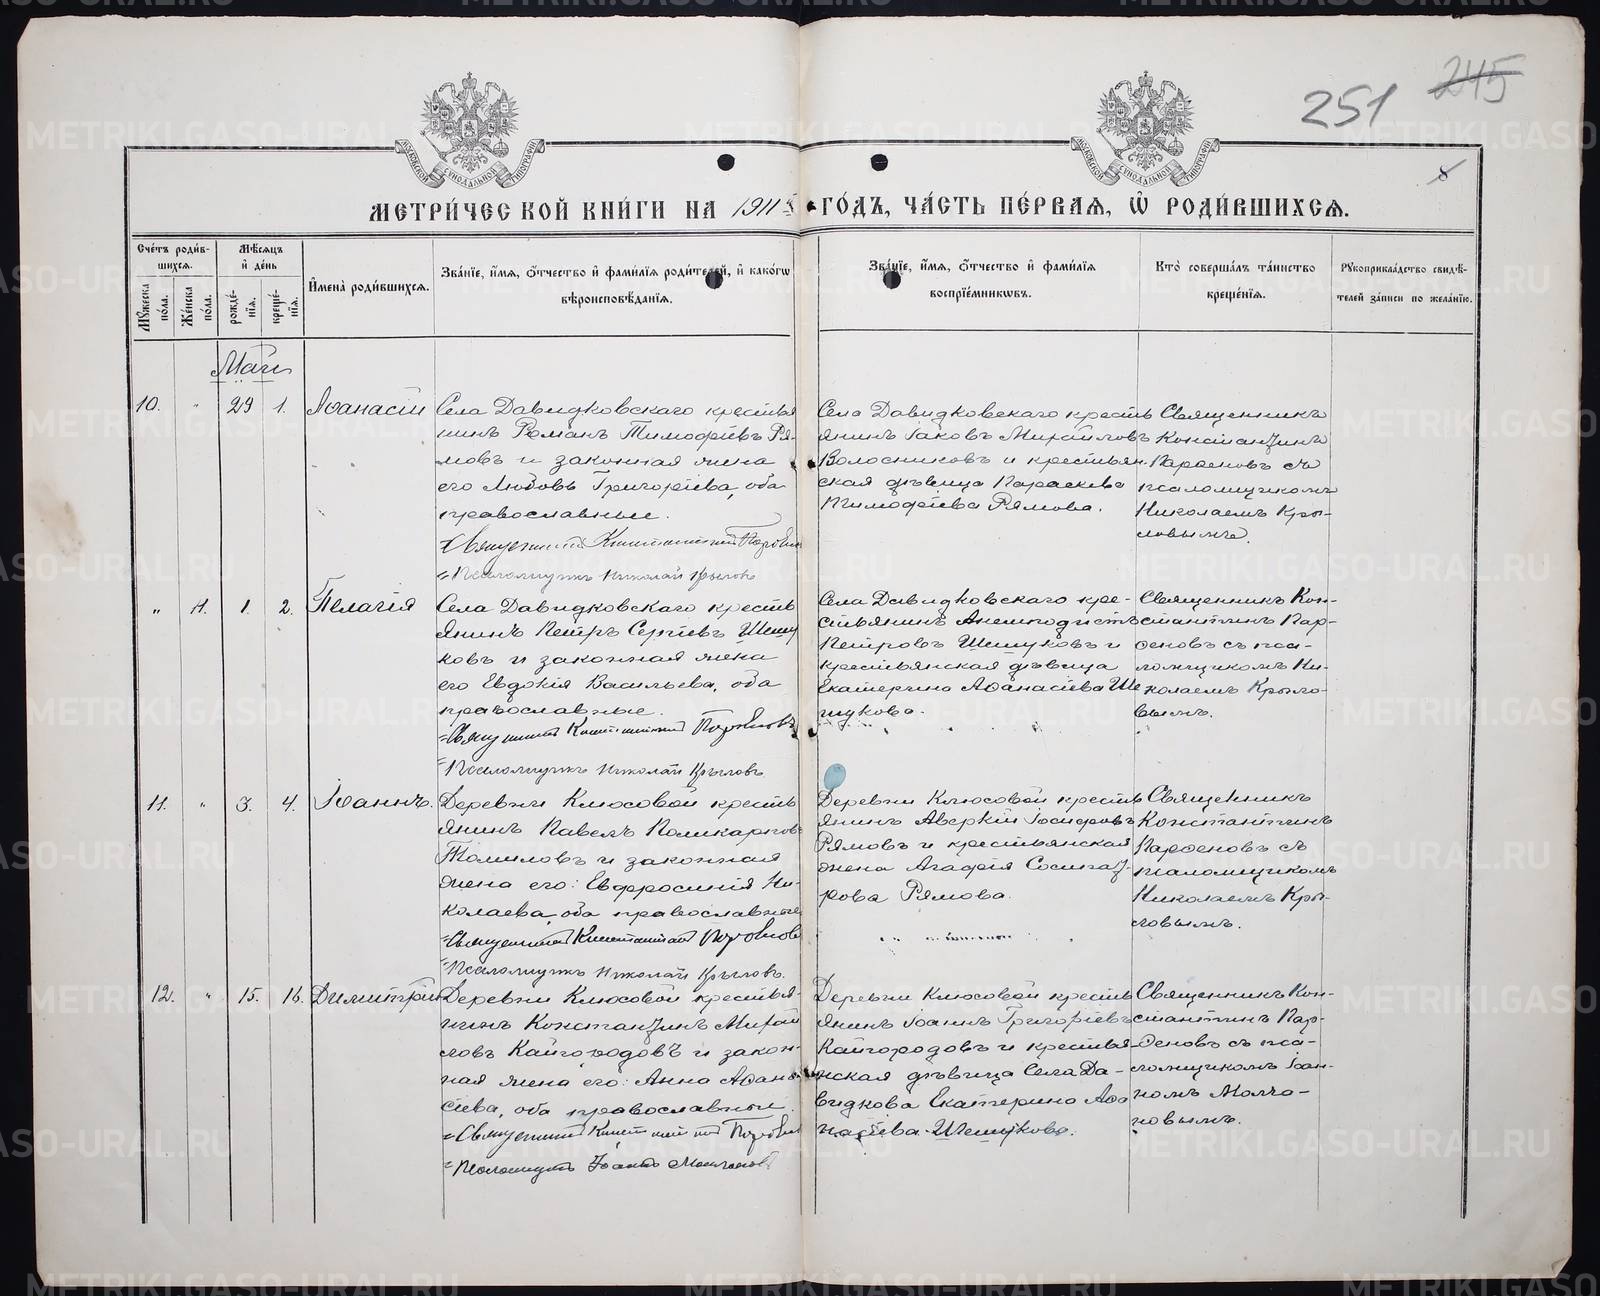 251
245
МОСКОВСКОЙ СѴНОДАЛЬНОЙ ТИПОГРАФІИ
МОСКОВСКОЙ СѴНОДАЛЬНОЙ ТИПОГРАФІИ
8
МЕТРИ́ЧЕСКОЙ КНИ́ГИ НА 1911й ГО́ДЪ, ЧА́СТЬ ПЕ́РВАЯ, Ѡ҆ РОДИ́ВШИХСЯ.
Сче́тъ роди́в-
шихся.
Мꙋ́жеска по́ла.
Же́нска по́ла.
Мѣ́сяцъ
и҆ де́нь
рожде́-
нїя.
креще́-
нїя.
И҆мена̀ роди́вшихся.
Зва́нїе, и҆́мя, ѻ҆́тчество и҆ фами́лїя роди́телей, и҆ како́гѡ
вѣроисповѣ́данїя.
Зва́нїе, и҆́мя, ѻ҆́тчество и҆ фами́лїя
воспрїе́мникѡвъ.
Кто̀ соверша́лъ та́инство
креще́нїя.
Рꙋкоприкла́дство свидѣ́-
телей за́писи по жела́нїю.
Май
10. " 29 1. Аѳанасій
Села Давидковскаго крестья
нинъ Романъ Тимофіевъ Ря-
мовъ и законная жена
его Любовь Григоріева, оба
православные.
Священникъ Константинъ Парѳеновъ
Псаломщикъ Николай Крыловъ
Села Давидковскаго кресть
янинъ Іаковъ Михайловъ
Колосниковъ и крестьян-
ская дѣвица Параскева
Тимофіева Рямова.
Священникъ
Константинъ
Парѳеновъ съ
псаломщикомъ
Николаемъ Кры-
ловымъ.
" 11. 1. 2. Пелагія
Села Давидковскаго кресть
янинъ Петръ Сергіевъ Шешу
ковъ и законная жена
его Евдокія Васильева, оба
православные.
Священникъ Константинъ Парѳеновъ
Псаломщикъ Николай Крыловъ
Села Давидковскаго кре-
стьянинъ Анемподистъ
Петровъ Шешуковъ и
крестьянская дѣвица
Екатерина Аѳанасіева Ше
шукова.
Священникъ Кон-
стантинъ Пар-
ѳеновъ съ пса-
ломщикомъ Ни-
колаемъ Крыло-
вымъ.
11. " 3. 4. Іоаннъ.
Деревни Клюсовой кресть
янинъ Павелъ Поликарповъ
Томиловъ и законная
жена его: Евфросинія Ни-
колаева, оба православные
Священникъ Константинъ Парѳеновъ
Псаломщикъ Николай Крыловъ.
Деревни Клюсовой кресть
янинъ Аверкій Іосифовъ
Рямовъ и крестьянская
жена Агафія Сосипат-
рова Рямова.
Священникъ
Константинъ
Парѳеновъ съ
псаломщикомъ
Николаемъ Кры-
ловымъ.
12. " 15. 16. Димитрій
Деревни Клюсовой крестья-
нинъ Константинъ Михай
ловъ Кайгородовъ и закон-
ная жена его: Анна Аѳана
сіева, оба православные.
Священникъ Константинъ Парѳеновъ
Псаломщикъ Іоаннъ Молчановъ
Деревни Клюсовой кресть
янинъ Іоаннъ Григоріевъ
Кайгородовъ и крестья-
нская дѣвица Села Да-
видкова Екатерина Аѳа
насіева Шешукова.
Священникъ Кон-
стантинъ Пар-
ѳеновъ съ пса-
ломщикомъ Іоан-
номъ Молча-
новымъ.
METRIKI.GASO-URAL.RU